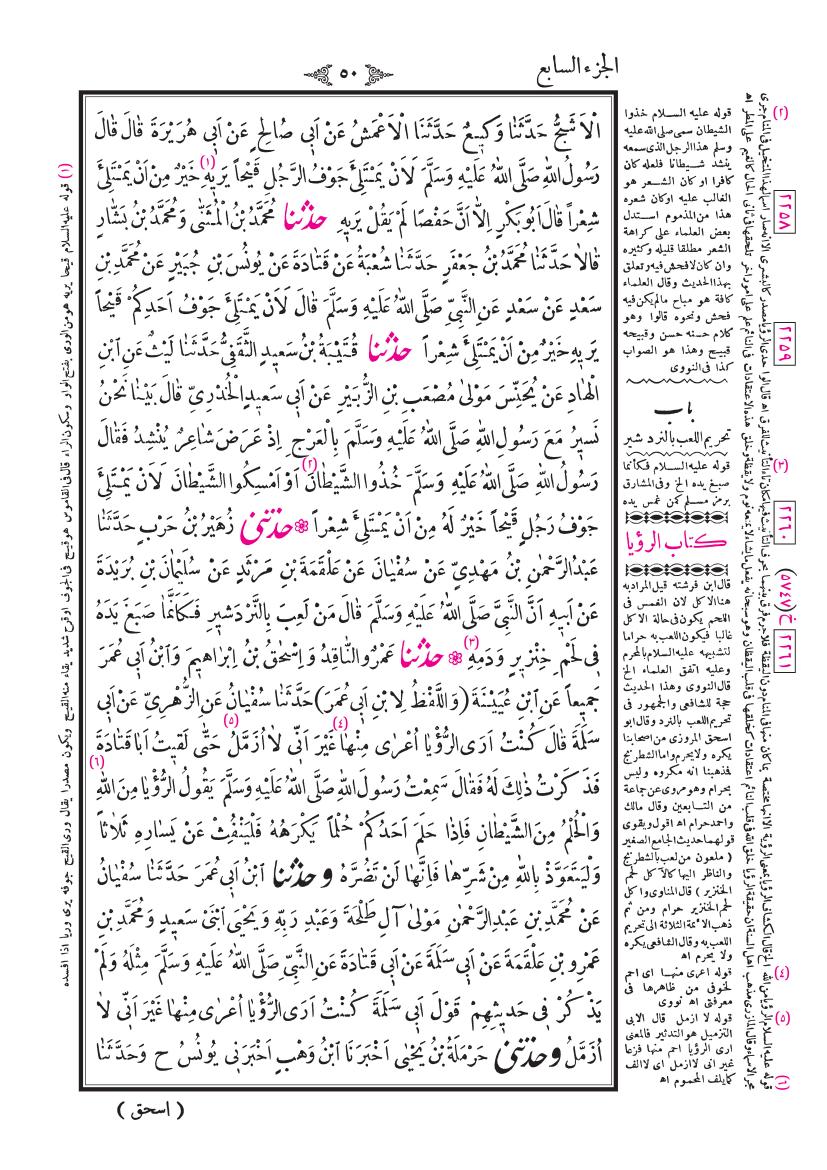 الجزء السابع
٥٠
الْاَشَجُّ حَدَّثَنَا وَكِيعٌ حَدَّثَنَا الْاَعْمَشُ عَنْ اَبِي صَالِحٍ عَنْ اَبِي هُرَيْرَةَ قَالَ قَالَ
رَسُولُ اللهِ صَلَّى اللهُ عَلَيْهِ وَسَلَّمَ لَاَنْ يَمْتَلِئَ جَوْفُ الرَّجُلِ قَيْحاً يَرِيْهِ (١) خَيْرٌ مِنْ اَنْ يَمْتَلِئَ
شِعْراً قَالَ اَبُو بَكْرٍ اِلَّا اَنَّ حَفْصًا لَمْ يَقُلْ يَرِيْهِ حَدَّثَنَا مُحَمَّدُ بْنُ الْمُثَنّٰى وَمُحَمَّدُ بْنُ بَشَّارٍ
قَالَا حَدَّثَنَا مُحَمَّدُ بْنُ جَعْفَرٍ حَدَّثَنَا شُعْبَةُ عَنْ قَتَادَةَ عَنْ يُونُسَ بْنِ جُبَيْرٍ عَنْ مُحَمَّدِ بْنِ
سَعْدٍ عَنْ سَعْدٍ عَنِ النَّبِيِّ صَلَّى اللهُ عَلَيْهِ وَسَلَّمَ قَالَ لَاَنْ يَمْتَلِئَ جَوْفُ اَحَدِكُمْ قَيْحاً
يَرِيْهِ خَيْرٌ مِنْ اَنْ يَمْتَلِئَ شِعْراً حَدَّثَنَا قُتَيْبَةُ بْنُ سَعِيدٍ الثَّقَفِيُّ حَدَّثَنَا لَيْثٌ عَنِ ابْنِ
الْهَادِ عَنْ يُحَنِّسَ مَوْلٰى مُصْعَبِ بْنِ الزُّبَيْرِ عَنْ اَبِي سَعِيدٍ الْخُدْرِيِّ قَالَ بَيْنَا نَحْنُ
نَسِيرُ مَعَ رَسُولِ اللهِ صَلَّى اللهُ عَلَيْهِ وَسَلَّمَ بِالْعَرْجِ اِذْ عَرَضَ شَاعِرٌ يُنْشِدُ فَقَالَ
رَسُولُ اللهِ صَلَّى اللهُ عَلَيْهِ وَسَلَّمَ خُذُوا الشَّيْطَانَ (٢) اَوْ اَمْسِكُوا الشَّيْطَانَ لَاَنْ يَمْتَلِئَ
جَوْفُ رَجُلٍ قَيْحاً خَيْرٌ لَهُ مِنْ اَنْ يَمْتَلِئَ شِعْراً ❋ حَدَّثَنِي زُهَيْرُ بْنُ حَرْبٍ حَدَّثَنَا
عَبْدُ الرَّحْمٰنِ بْنُ مَهْدِيٍّ عَنْ سُفْيَانَ عَنْ عَلْقَمَةَ بْنِ مَرْثَدٍ عَنْ سُلَيْمَانَ بْنِ بُرَيْدَةَ
عَنْ اَبِيهِ اَنَّ النَّبِيَّ صَلَّى اللهُ عَلَيْهِ وَسَلَّمَ قَالَ مَنْ لَعِبَ بِالنَّرْدَشِيرِ فَكَاَنَّمَا صَبَغَ يَدَهُ
فِي لَحْمِ خِنْزِيرٍ وَدَمِهِ (٣) ❋ حَدَّثَنَا عَمْرٌو النَّاقِدُ وَاِسْحٰقُ بْنُ اِبْرَاهِيمَ وَابْنُ اَبِي عُمَرَ
جَمِيعاً عَنِ ابْنِ عُيَيْنَةَ (وَاللَّفْظُ لِابْنِ اَبِي عُمَرَ) حَدَّثَنَا سُفْيَانُ عَنِ الزُّهْرِيِّ عَنْ اَبِي
سَلَمَةَ قَالَ كُنْتُ اَرَى الرُّؤْيَا اُعْرٰى مِنْهَا (٤) غَيْرَ اَنِّي لَا اُزَمَّلُ (٥) حَتّٰى لَقِيتُ اَبَا قَتَادَةَ
فَذَكَرْتُ ذٰلِكَ لَهُ فَقَالَ سَمِعْتُ رَسُولَ اللهِ صَلَّى اللهُ عَلَيْهِ وَسَلَّمَ يَقُولُ الرُّؤْيَا مِنَ اللهِ (٦)
وَالْحُلْمُ مِنَ الشَّيْطَانِ فَاِذَا حَلَمَ اَحَدُكُمْ حُلْماً يَكْرَهُهُ فَلْيَنْفِثْ عَنْ يَسَارِهِ ثَلَاثاً
وَلْيَتَعَوَّذْ بِاللهِ مِنْ شَرِّهَا فَاِنَّهَا لَنْ تَضُرَّهُ وحَدَّثَنَا ابْنُ اَبِي عُمَرَ حَدَّثَنَا سُفْيَانُ
عَنْ مُحَمَّدِ بْنِ عَبْدِ الرَّحْمٰنِ مَوْلٰى آلِ طَلْحَةَ وَعَبْدِ رَبِّهِ وَيَحْيَى ابْنَيْ سَعِيدٍ وَمُحَمَّدِ بْنِ
عَمْرِو بْنِ عَلْقَمَةَ عَنْ اَبِي سَلَمَةَ عَنْ اَبِي قَتَادَةَ عَنِ النَّبِيِّ صَلَّى اللهُ عَلَيْهِ وَسَلَّمَ مِثْلَهُ وَلَمْ
يَذْكُرْ فِي حَدِيثِهِمْ قَوْلَ اَبِي سَلَمَةَ كُنْتُ اَرَى الرُّؤْيَا اُعْرٰى مِنْهَا غَيْرَ اَنِّي لَا
اُزَمَّلُ وحَدَّثَنِي حَرْمَلَةُ بْنُ يَحْيٰى اَخْبَرَنَا ابْنُ وَهْبٍ اَخْبَرَنِي يُونُسُ ح وَحَدَّثَنَا
( اسحق )
(٢)
قوله عليه السلام خذوا
الشيطان سمى صلى الله عليه
وسلم هذا الرجل الذى سمعه
ينشد شيطانا فلعله كان
كافرا او كان الشعر هو
الغالب عليه او كان شعره
هذا من المذموم استدل
بعض العلماء على كراهة
الشعر مطلقا قليله وكثيره
وان كان لافحش فيه وتعلق
بهذا الحديث وقال العلماء
كافة هو مباح مالم يكن فيه
فحش ونحوه قالوا وهو
كلام حسنه حسن وقبيحه
قبيح وهذا هو الصواب
كذا فى النووى
باب
تحريم اللعب بالنردشير
(٣)
قوله عليه السلام فكأنما
صبغ يده الخ وفى المشارق
برمز مسلم كمن غمس يده
كتاب الرؤيا
قال ابن فرشته قيل المراد به
هنا الاكل لان الغمس فى
اللحم يكون فى حالة الاكل
غالبا فيكون اللعب به حراما
لتشبيهه عليه السلام بالمحرم
وعليه اتفق العلماء الخ
قال النووى وهذا الحديث
حجة للشافعى والجمهور فى
تحريم اللعب بالنرد وقال ابو
اسحق المروزى من اصحابنا
يكره ولا يحرم واما الشطرنج
فمذهبنا انه مكروه وليس
بحرام وهو مروى عن جماعة
من التابعين وقال مالك
واحمد حرام اه اقول ويقوى
قولهما حديث الجامع الصغير
( ملعون من لعب بالشطرنج
والناظر اليها كالآكل لحم
الخنزير ) قال المناوى واكل
لحم الخنزير حرام ومن ثم
ذهب الائمة الثلاثة الى تحريم
اللعب به وقال الشافعى يكره
ولا يحرم اه
(٤)
قوله اعرى منها اى احم
لخوفى من ظاهرها فى
معرفتى اه نووى
(٥)
قوله لا ازمل قال الابى
التزميل هو التدثير فالمعنى
ارى الرؤيا احم منها فزعا
غير انى لا ازمل اى لا الف
كما يلف المحموم اه
(٦)
٢٢٥٨
٢٢٥٩
٢٢٦٠
خ(٥٧٤٧) ٢٢٦١
(١) قوله عليه السلام قيحا يريه هو من الورى بفتح الواو وسكون الراء قال فى القاموس هو قيح فى الجوف او قرح شديد يقاء منه القيح ويكون مصدرا يقال ورى القيح جوفه يرى وريا اذا افسده